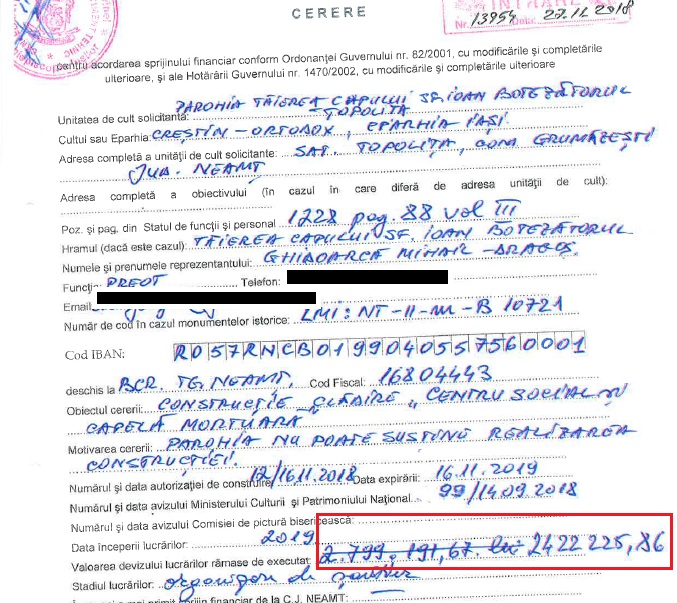 CERERE
INTRARE
Nr. 13954 Data: 27.11.2018
pentru acordarea sprijinului financiar conform Ordonanţei Guvernului nr. 82/2001, cu modificările şi completările
ulterioare, şi ale Hotărârii Guvernului nr. 1470/2002, cu modificările şi completările ulterioare
Unitatea de cult solicitantă: PAROHIA TĂIEREA CAPULUI SF. IOAN BOTEZĂTORUL
TOPOLIŢA
Cultul sau Eparhia: CREŞTIN-ORTODOX, EPARHIA IAŞI
Adresa completă a unităţii de cult solicitante: SAT. TOPOLIŢA, COM. GRUMĂZEŞTI
JUD. NEAMŢ
Adresa completă a obiectivului (în cazul în care diferă de adresa unităţii de cult):
Poz. şi pag. din Statul de funcţii şi personal 1228 pag. 88 vol III
Hramul (dacă este cazul): TĂIEREA CAPULUI SF. IOAN BOTEZĂTORUL
Numele şi prenumele reprezentantului: GHIDOARCĂ MIHAIL-DRAGOŞ
Funcţia PREOT Telefon:
Email:
Număr de cod în cazul monumentelor istorice: LMI: NT-II-m-B 10721
Cod IBAN: RO57RNCB0199040557560001
deschis la BCR. TG. NEAMŢ, Cod Fiscal: 16804443
Obiectul cererii: CONSTRUCŢIE CLĂDIRE „CENTRU SOCIAL CU
CAPELĂ MORTUARĂ
Motivarea cererii: PAROHIA NU POATE SUSŢINE REALIZAREA
CONSTRUCŢIEI.
Numărul şi data autorizaţiei de construire 12/16.11.2018 Data expirării: 16.11.2019
Numărul şi data avizului Ministerului Culturii şi Patrimoniului Naţional 99/14.09.2018
Numărul şi data avizului Comisiei de pictură bisericească:
Data începerii lucrărilor: 2019
Valoarea devizului lucrărilor rămase de executat: 2.799.191,67 lei 2422 225,86
Stadiul lucrărilor: organizare de şantier